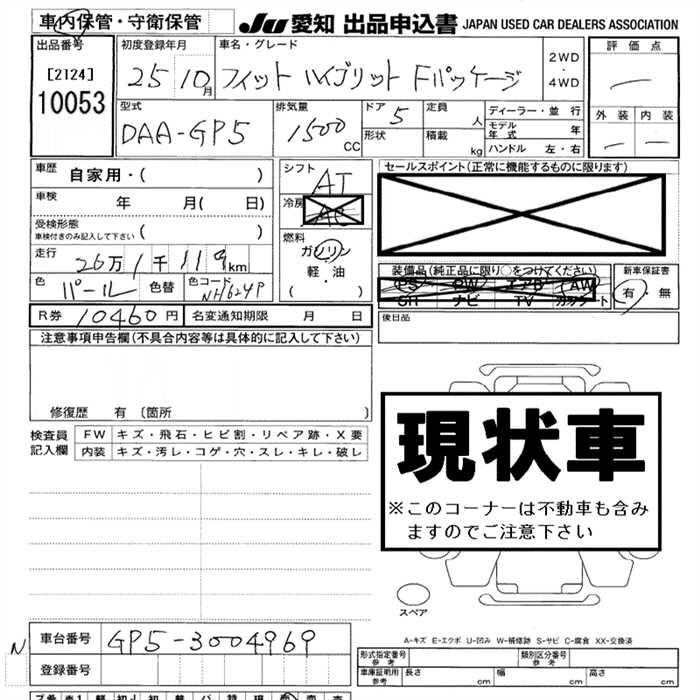 車内保管・守衛保管 JU 愛知 出品申込書 JAPAN USED CAR DEALERS ASSOCIATION
出品番号 初度登録年月 車名・グレード 評価点
[2124] 25 10月 フィット ハイブリット Fパッケージ 2WD・4WD
10053
型式 排気量 ドア 定員 ディーラー・並行 外装 内装
DAA-GP5 1500 CC 5 人 モデル年式 年
形状 積載 kg ハンドル 左・右
車歴 自家用・( ) シフト AT セールスポイント(正常に機能するものに限ります)
車検 年 月( 日) 冷房 AC
受検形態 ( ) 燃料
車検付きのみ記入して下さい ガソリン
走行 26万1千119km 軽・油 装備品(純正品に限り○をつけてください) 新車保証書
色 パール 色替 色コード NH624P ( ) PS PW エアB AW 有・無
SH ナビ TV カセット
R券 10460円 名変通知期限 月 日 後日品
注意事項申告欄(不具合内容等は具体的に記入して下さい)
修復歴 有 〔箇所 〕
検査員 FW キズ・飛石・ヒビ割・リペア跡・X要
記入欄 内装 キズ・汚レ・コゲ・穴・スレ・キレ・破レ
現状車
※このコーナーは不動車も含み
ますのでご注意下さい
スペア
A-キズ E-エクボ U-凹み W-補修跡 S-サビ C-腐食 XX-交換済
N 車台番号 GP5-3004969
登録番号
形式指定番号 参考 類別区分番号 参考
車庫証明用 参考 長さ cm 幅 cm 高さ cm